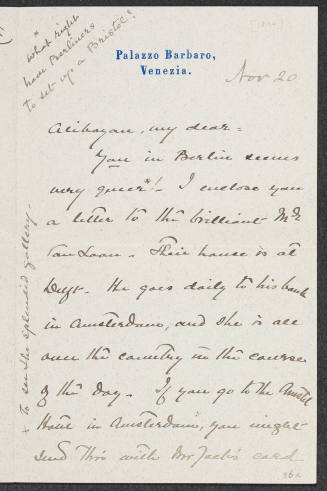 * what right
have Berliners
to set up a Bristol?
Palazzo Barbaro,
Venezia.
Nov 20
my dear =
You in Berlin seems
very queer*! - I enclose you
a letter to the brilliant Mde
Van Loon. Their house is at
He goes daily to his bank
in Amsterdam, and she is all
over the country in the course
of the day. - If you go to the Amstel
Hotel in Amsterdam, you might
send this with Mrs Jack's card
x to see the splendid gallery -